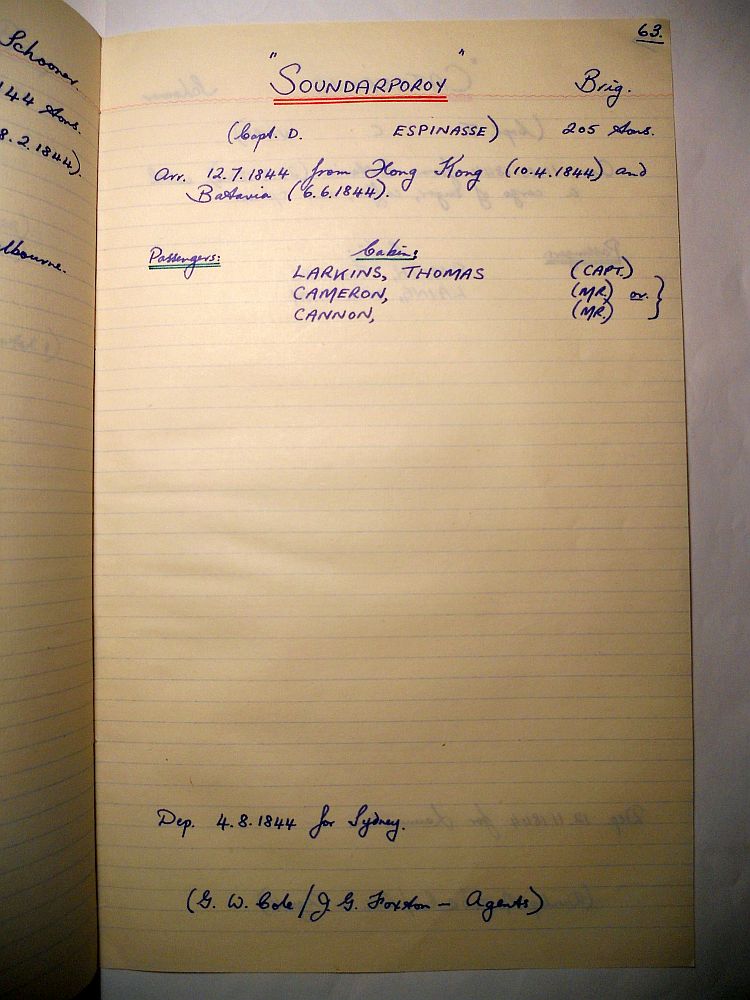 Schooner.
144 tons.
8.2.1844).
lbourne.
63.
"SOUNDARPOROY" Brig.
(Capt. D. ESPINASSE) 205 tons.
Arr. 12.7.1844 from Hong Kong (10.4.1844) and
Batavia (6.6.1844).
Passengers: Cabin:
LARKINS, THOMAS (CAPT.)
CAMERON, (MR.) or }
CANNON, (MR.)
Dep. 4.8.1844 for Sydney.
(G. W. Cole / J. G. Foxton - Agents)